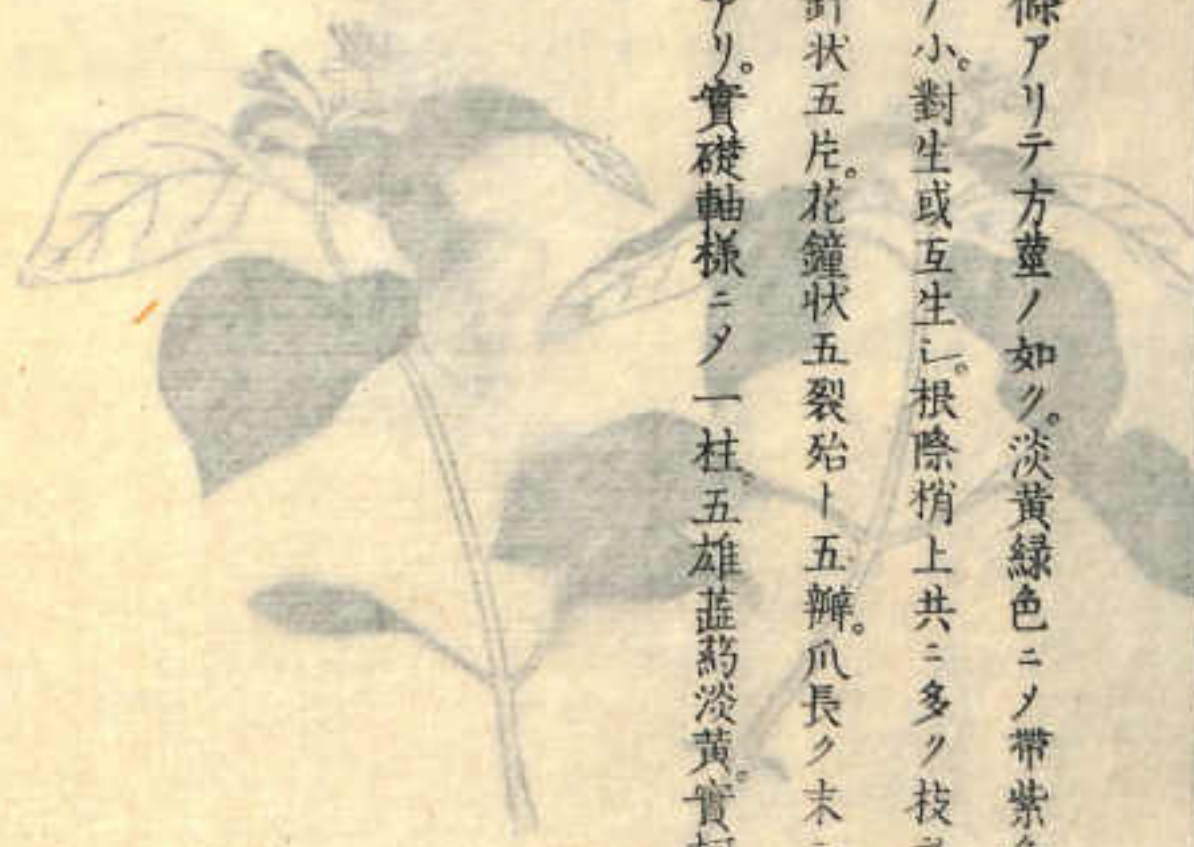 條アリテ方莖ノ如ク。淡黄緑色ニメ帶紫
小。對生或互生し。根際梢上共ニ多ク枝
針状五片。花鐘状五裂殆ト五瓣。爪長ク末
アリ。實礎軸様ニメ一柱。五雄蕋葯淡黄。實